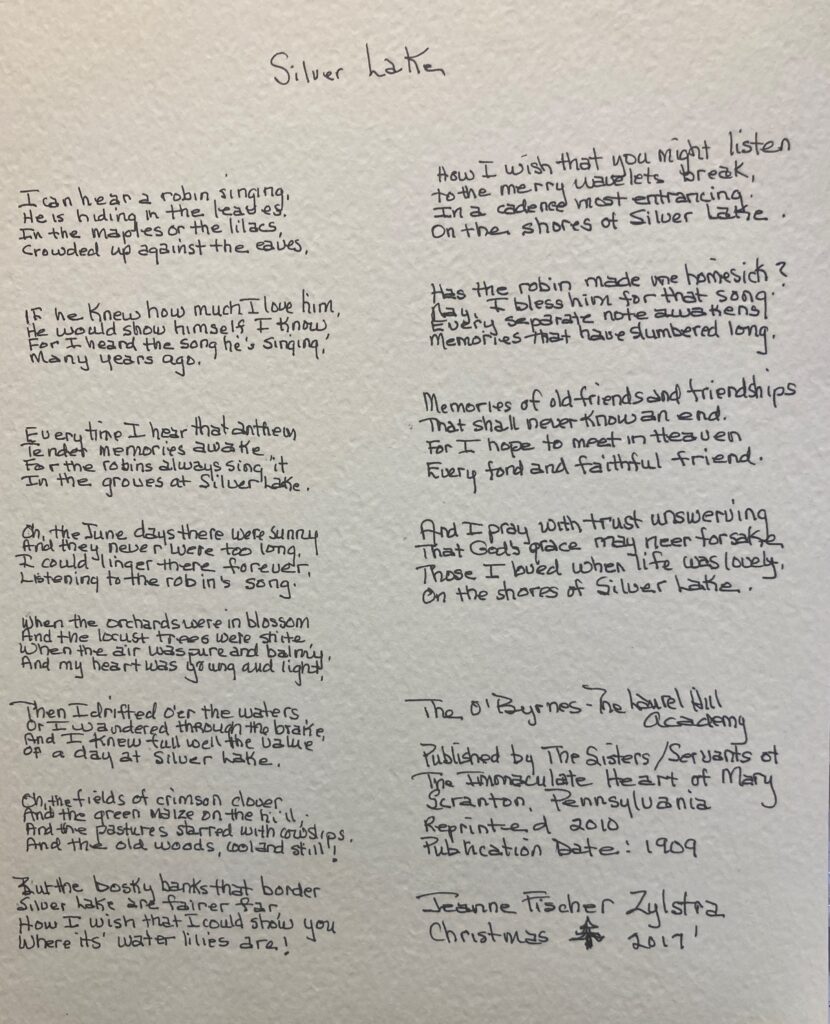 Silver Lake
I can hear a robin singing,
He is hiding in the leaves.
In the maples or the lilacs,
Crowded up against the eaves,
If he knew how much I love him,
He would show himself I know
For I heard the song he's singing,
Many years ago.
Every time I hear that anthem
Tender memories awake
For the robins always sing it
In the groves at Silver Lake.
Oh, the June days there were sunny
And they never were too long,
I could linger there forever,
Listening to the robin's song.
When the orchards were in blossom
And the locust trees were
When the air was pure and balmy,
And my heart was young and light,
Then I drifted o'er the waters,
Or I wandered through the brake,
And I knew full well the value
Of a day at Silver Lake.
Oh, the fields of crimson clover
And the green maize on the hill,
And the pastures starred with cowslips.
And the old woods, cool and still!
But the bosky banks that border
Silver Lake are fairer far,
How I wish that I could show you
Where its' water lilies are!
How I wish that you might listen
to the merry wavelets break,
In a cadence most entrancing.
On the shores of Silver Lake.
Has the robin made me homesick?
Nay, I bless him for that song.
Every separate note awakens
Memories that have slumbered long.
Memories of old friends and friendships
That shall never know an end.
For I hope to meet in Heaven
Every fond and faithful friend.
And I pray with trust unswerving
That God's grace may neer forsake
Those I loved when life was lovely,
On the shores of Silver Lake.
The O'Byrnes - The Laurel Hill
Academy
Published by The Sisters/Servants of
The Immaculate Heart of Mary
Scranton, Pennsylvania
Reprinted 2010
Publication Date: 1909
Jeanne Fischer Zylstra
Christmas 2017